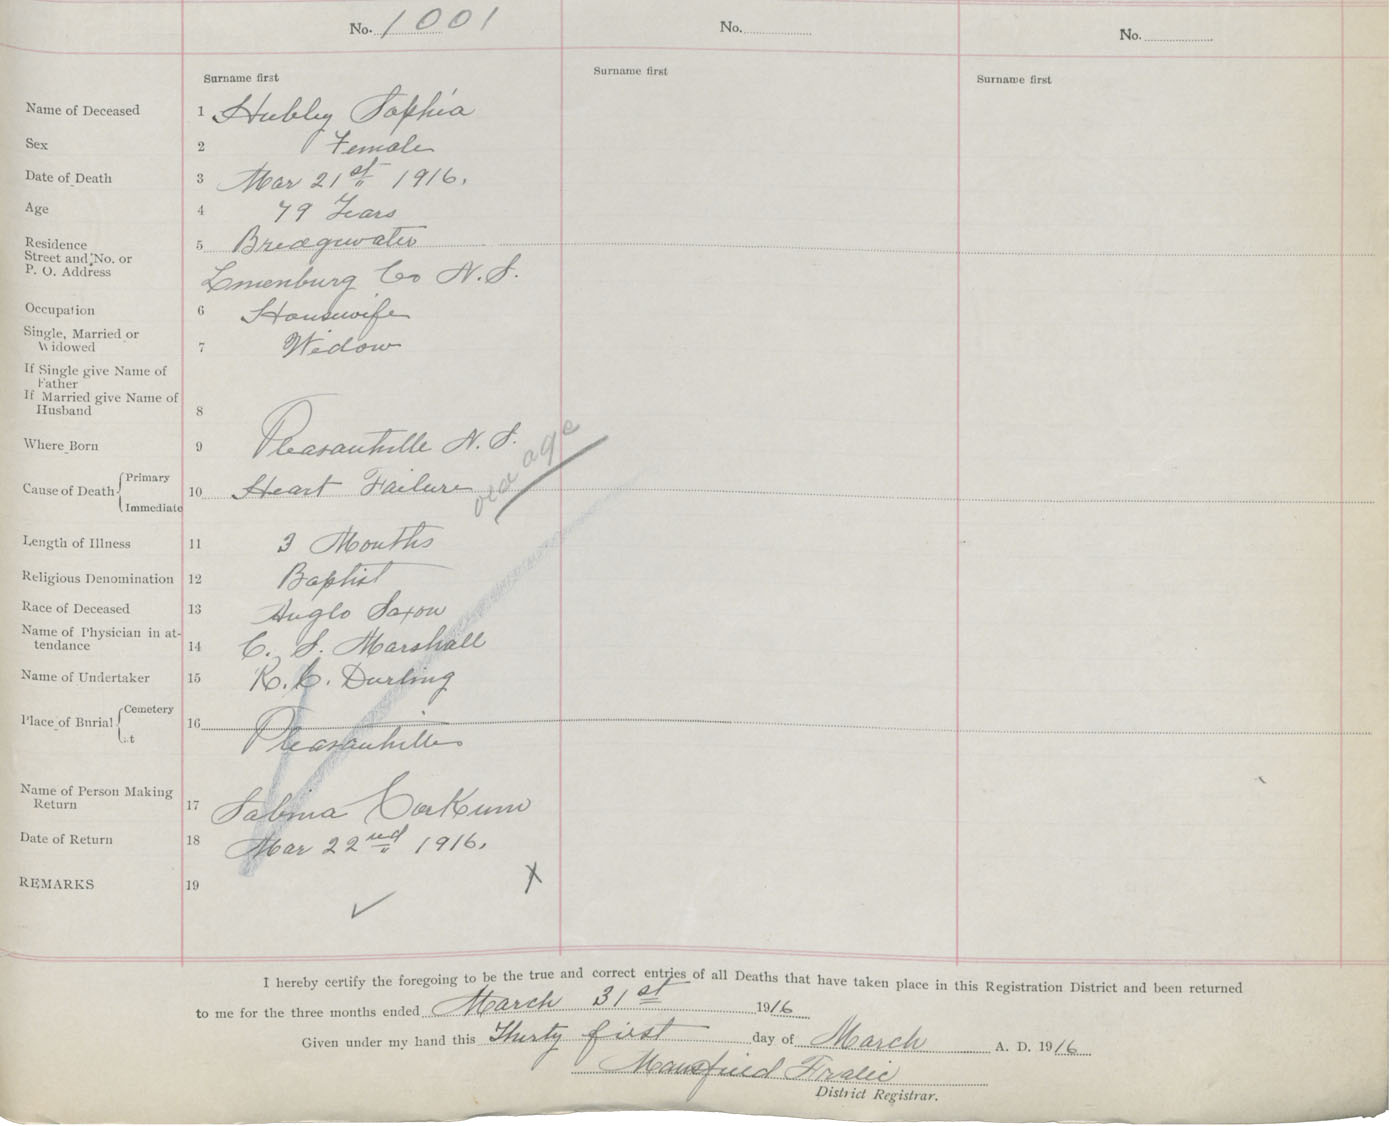 No. 1001 No. No.
Surname first Surname first Surname first
Name of Deceased 1 Hubley Sophia
Sex 2 Female
Date of Death 3 Mar 21st 1916.
Age 4 79 Years
Residence 5 Bridgewater
Street and No. or
P. O. Address Lunenburg Co N. S.
Occupation 6 Housewife
Single, Married or
Widowed 7 Widow
If Single give Name of
Father
If Married give Name of
Husband 8
Where Born 9 Pleasantville N. S.
old age
Cause of Death Primary 10 Heart Failure
Immediate
Length of Illness 11 3 Months
Religious Denomination 12 Baptist
Race of Deceased 13 Anglo Saxon
Name of Physician in at-
tendance 14 C. S. Marshall
Name of Undertaker 15 R. C. Durling
Place of Burial Cemetery 16
at Pleasantville
Name of Person Making
Return 17 Sabina Corkum
Date of Return 18 Mar 22nd 1916.
REMARKS 19
I hereby certify the foregoing to be the true and correct entries of all Deaths that have taken place in this Registration District and been returned
to me for the three months ended March 31st 1916
Given under my hand this Thirty first day of March A. D. 1916
Mansfield Fralic
District Registrar.